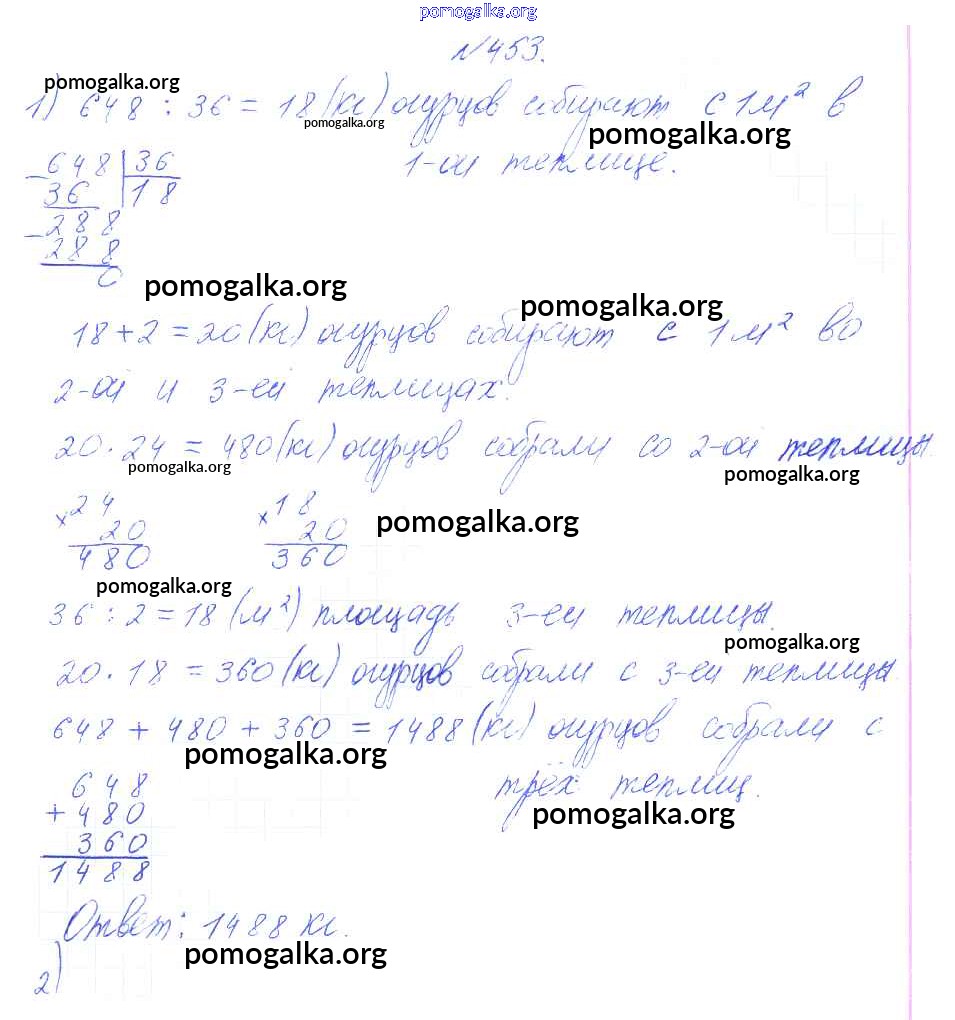 pomogalka.org
№453.
pomogalka.org
1) 648 : 36 = 18 (кг) огурцов собирают с 1 м² в
pomogalka.org
pomogalka.org
1-ой теплице.
- 648 | 36
36 | 18
- 288
288
0
pomogalka.org
pomogalka.org
18 + 2 = 20 (кг) огурцов собирают с 1 м² во
2-ой и 3-ей теплицах.
20 · 24 = 480 (кг) огурцов собрали со 2-ой теплицы.
pomogalka.org
pomogalka.org
× 24 × 18
20 20
480 360
pomogalka.org
pomogalka.org
36 : 2 = 18 (м²) площадь 3-ей теплицы.
pomogalka.org
20 · 18 = 360 (кг) огурцов собрали с 3-ей теплицы.
648 + 480 + 360 = 1488 (кг) огурцов собрали с
pomogalka.org
трёх теплиц.
pomogalka.org
648
+ 480
360
1488
Ответ: 1488 кг.
pomogalka.org
2)